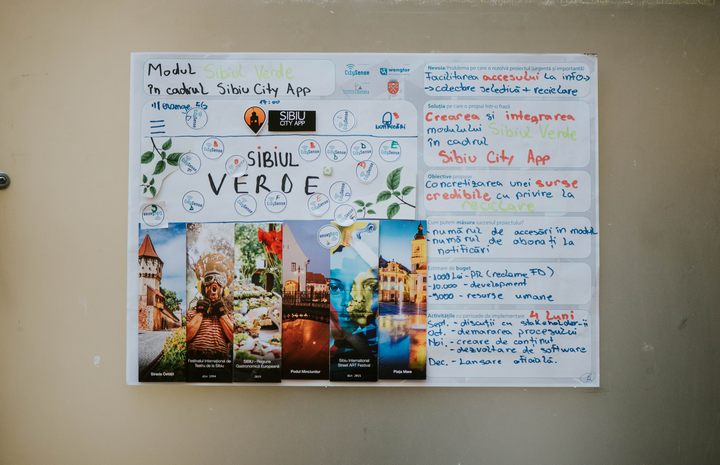 Modul Sibiul Verde
în cadrul Sibiu City App
CitySense
wenglor
orange 5G
17:00
SIBIU
CITY APP
NOTIFICĂRI
SIBIUL
VERDE
Strada Cetății
Festivalul Internațional de
Teatru de la Sibiu
din 1994
SIBIU - Regiune
Gastronomică Europeană
2019
Podul Minciunilor
Sibiu International
Street ART Festival
din 2015
Piața Mare
Nevoia/Problema pe care o rezolvă proiectul (urgentă și importantă!)
Facilitarea accesului la info
→ colectare selectivă + reciclare
Soluția pe care o propui într-o frază
Crearea și integrarea
modulului Sibiul Verde
în cadrul
Sibiu City App
Obiective propuse
Concretizarea unei surse
credibile cu privire la
reciclare
Cum putem măsura succesul proiectului?
- numărul de accesări în modul
- numărul de abonați la
notificări
Estimare de buget
- 1000 Lei - PR (reclame FB)
- 10.000 - development
- 5000 - resurse umane
Activitățile cu perioade de implementare 4 Luni
Sept. - discuții cu stakeholder-ii
Oct. - demararea procesului
Noi. - creare de conținut
- dezvoltare de software
Dec. - Lansare oficială.